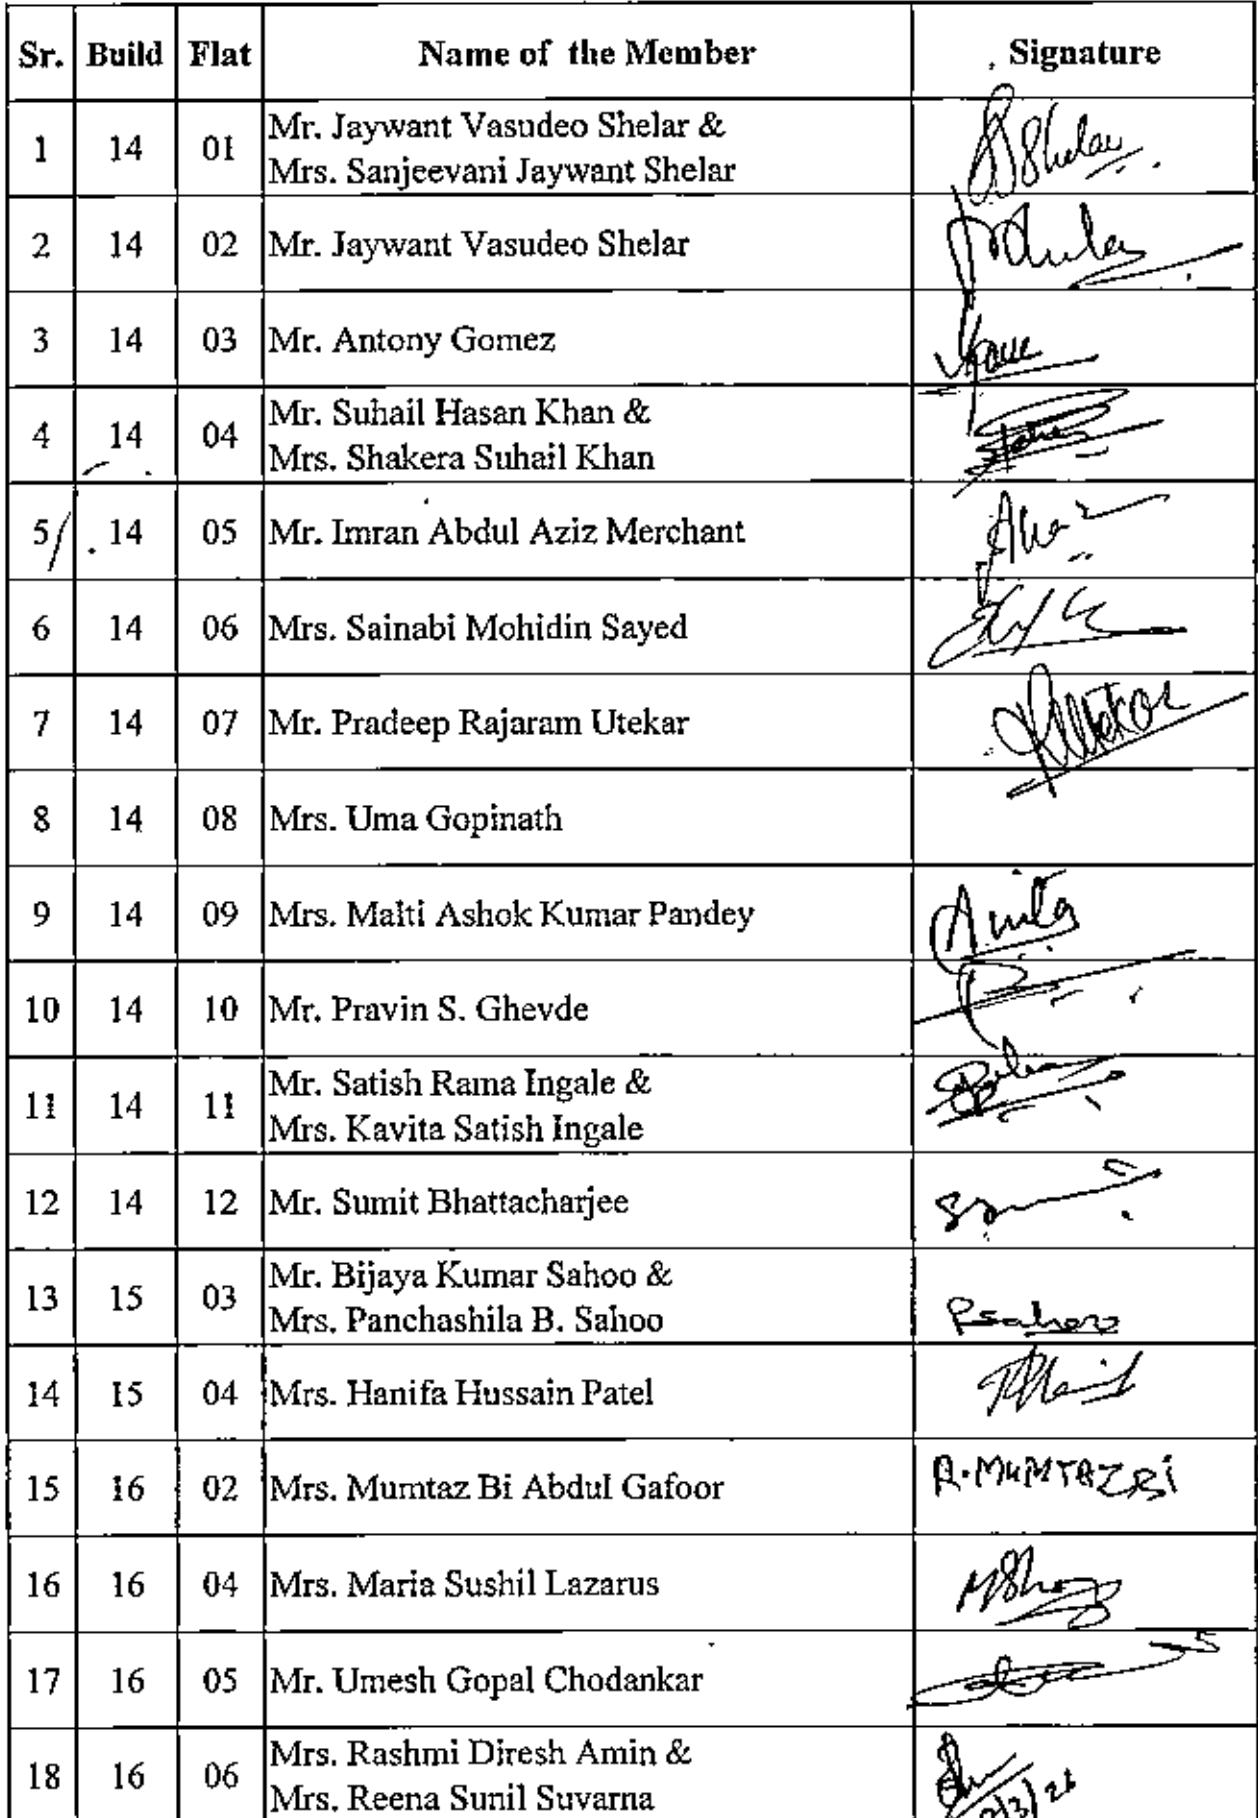 Sr. Build Flat Name of the Member Signature
1 14 01 Mr. Jaywant Vasudeo Shelar &
Mrs. Sanjeevani Jaywant Shelar
Shelar
2 14 02 Mr. Jaywant Vasudeo Shelar
3 14 03 Mr. Antony Gomez
4 14 04 Mr. Suhail Hasan Khan &
Mrs. Shakera Suhail Khan
5 14 05 Mr. Imran Abdul Aziz Merchant
6 14 06 Mrs. Sainabi Mohidin Sayed
7 14 07 Mr. Pradeep Rajaram Utekar
8 14 08 Mrs. Uma Gopinath
9 14 09 Mrs. Malti Ashok Kumar Pandey
10 14 10 Mr. Pravin S. Ghevde
11 14 11 Mr. Satish Rama Ingale &
Mrs. Kavita Satish Ingale
12 14 12 Mr. Sumit Bhattacharjee
13 15 03 Mr. Bijaya Kumar Sahoo &
Mrs. Panchashila B. Sahoo
Psahoo
14 15 04 Mrs. Hanifa Hussain Patel
15 16 02 Mrs. Mumtaz Bi Abdul Gafoor R.MUMTAZBi
16 16 04 Mrs. Maria Sushil Lazarus
17 16 05 Mr. Umesh Gopal Chodankar
18 16 06 Mrs. Rashmi Diresh Amin &
Mrs. Reena Sunil Suvarna